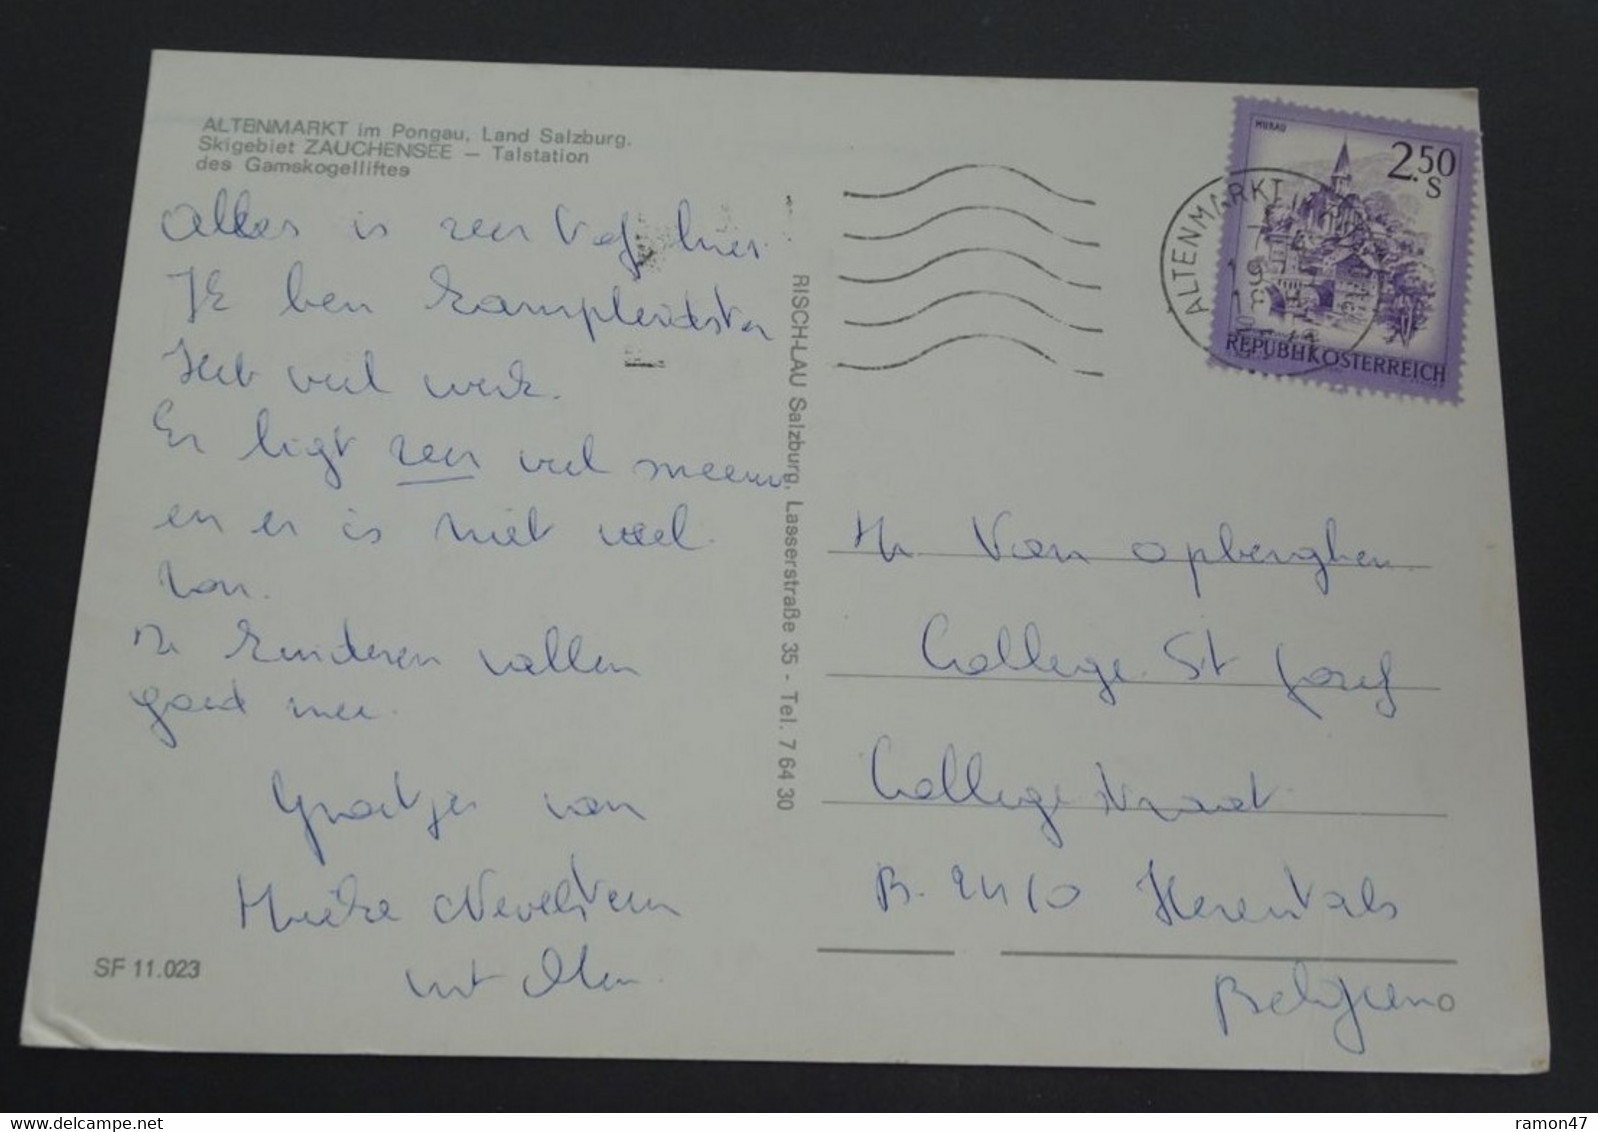 ALTENMARKT im Pongau, Land Salzburg.
Skigebiet ZAUCHENSEE — Talstation
des Gamskogelliftes
Alles is zeer tof hier.
Ik ben kampleidster
Heb veel werk.
Er ligt zeer veel sneeuw
en er is niet veel
zon.
De kinderen vallen
goed mee.
Groetjes van
Mieke Nevelsteen
uit Olen.
SF 11.023
RISCH-LAU Salzburg, Lasserstraße 35 - Tel. 7 64 30
MURAU
2.50
S
REPUBLIK ÖSTERREICH
ALTENMARKT
Hr Van Opberghen
College St Jozef
Collegestraat
B. 2410 Herentals
Belgium
ramon47